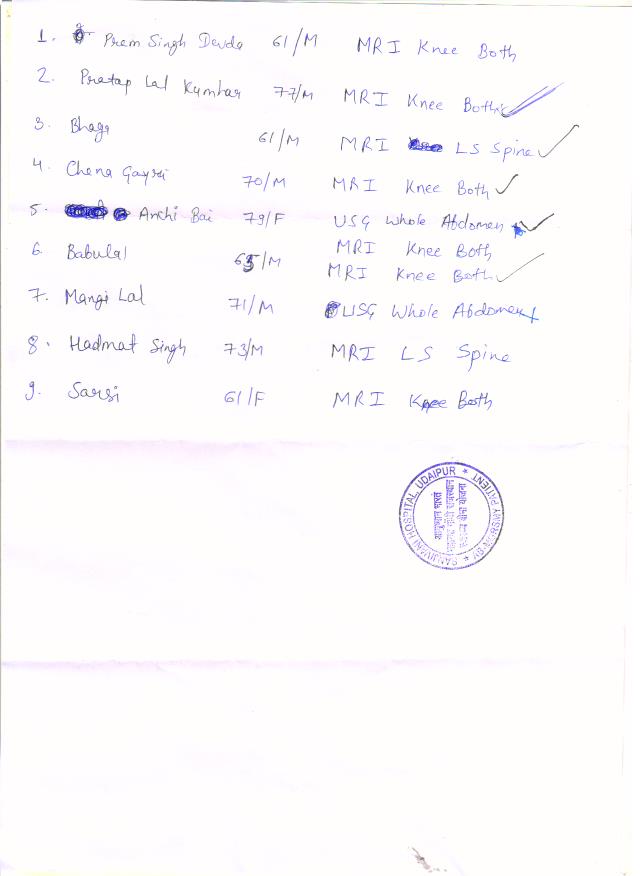 1. Prem Singh Devda 61/M MRI Knee Both
2. Pratap Lal Kumhar 77/M MRI Knee Both
3. Bhaga 61/M MRI LS Spine
4. Chena Gayri 70/M MRI Knee Both
5. Anchi Bai 79/F USG Whole Abdomen
MRI Knee Both
6. Babulal 65/M MRI Knee Both
7. Mangi Lal 71/M USG Whole Abdomen
8. Hadmat Singh 73/M MRI LS Spine
9. Sarsi 61/F MRI Knee Both
SANJIVANI HOSPITAL, UDAIPUR * AB-MGRSBY PATIENT *